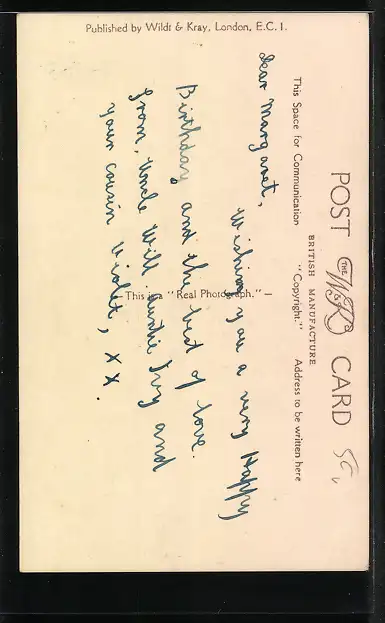 Published by Wildt & Kray, London, E.C.1.
POST CARD
THE W&K
BRITISH MANUFACTURE
"Copyright."
This Space for Communication
Address to be written here
Dear Margaret,
Wishing you a very Happy
Birthday and the best of love.
from, Uncle Will. Auntie Ivy and
your cousin Violet, X X.
This is a "Real Photograph." —